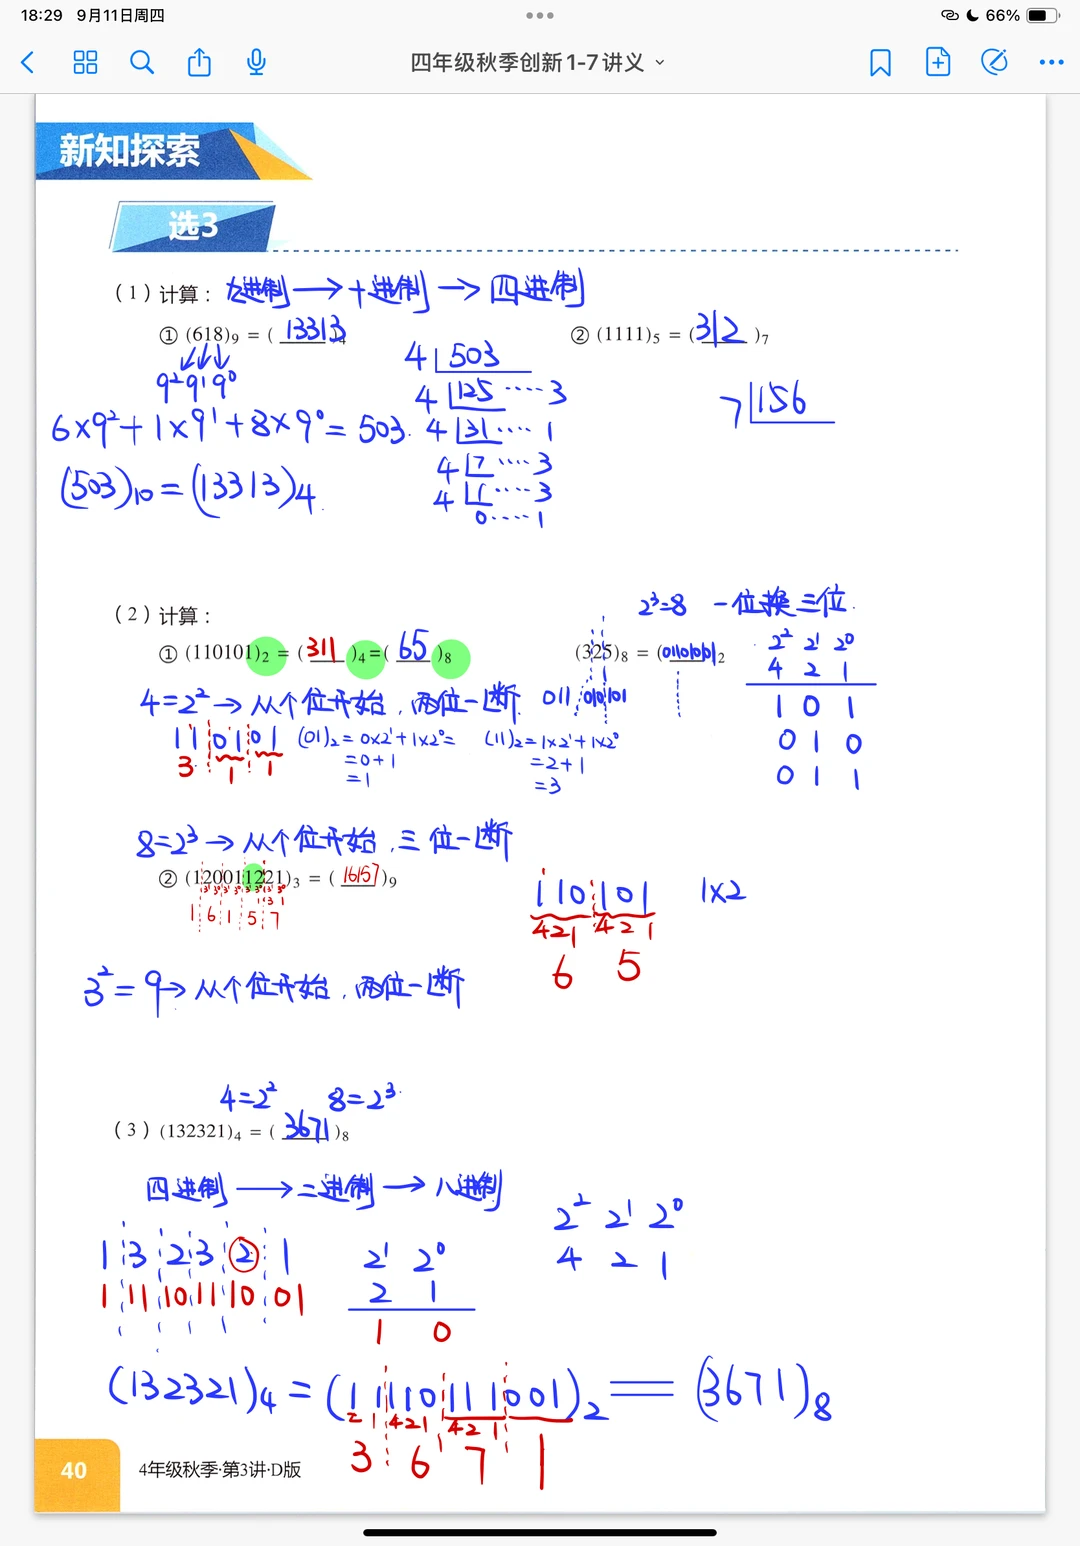 18:29 9月11日周四
66%
四年级秋季创新1-7讲义
新知探索
选3
(1)计算: 九进制→十进制→四进制
①(618)₉ = (13313)₄ ②(1111)₅ = (312)₇
9² 9¹ 9⁰
6×9²+1×9¹+8×9⁰=503.
(503)₁₀=(13313)₄.
4 503
4 125 ····3
4 31 ····1
4 7 ····3
4 1 ····3
0 ····1
7 156
(2)计算:
2³=8 一位换三位.
①(110101)₂ = (311)₄=(65)₈ (325)₈ = (011010101)₂
2² 2¹ 2⁰
4 2 1
1 0 1
0 1 0
0 1 1
4=2²→从个位开始,两位一断. 011 010101
11 01 01
3 1 1
(01)₂=0×2¹+1×2⁰=
=0+1
=1
(11)₂=1×2¹+1×2⁰
=2+1
=3
8=2³→从个位开始,三位一断
②(120011221)₃ = (16157)₉
3¹ 3⁰
3 1
1 6 1 5 7
110 101
421 421
6 5
1×2
3²=9→从个位开始,两位一断
4=2² 8=2³
(3)(132321)₄ = (3671)₈
四进制→二进制→八进制
1 3 2 3 2 1
1 11 10 11 10 01
2¹ 2⁰
2 1
1 0
2² 2¹ 2⁰
4 2 1
(132321)₄=(11110111001)₂=(3671)₈
21 421 421
3 6 7 1
40 4年级秋季·第3讲·D版